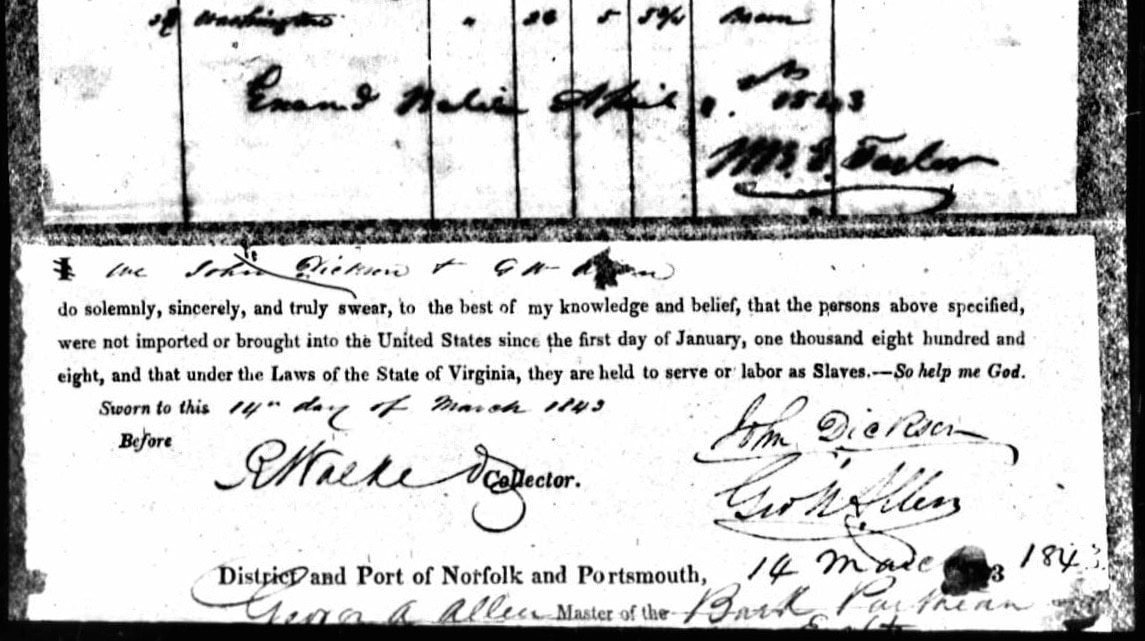 Washington " 26 5 5 3/4 Brown
Exam'd Balize April 1843
Wm. G. Taylor
We John Dickson & G W Allen
do solemnly, sincerely, and truly swear, to the best of my knowledge and belief, that the persons above specified,
were not imported or brought into the United States since the first day of January, one thousand eight hundred and
eight, and that under the Laws of the State of Virginia, they are held to serve or labor as Slaves.—So help me God.
Sworn to this 14th day of March 1843
John Dickson
Before
R Walke D Collector.
Geo W Allen
District and Port of Norfolk and Portsmouth, 14 March 1843
George A Allen Master of the Bark Parthian